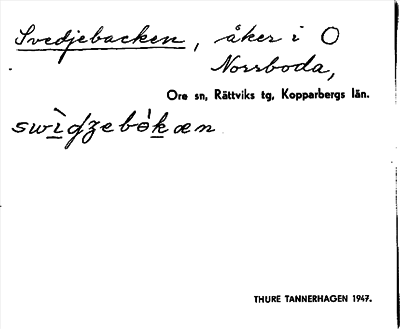 Svedjebacken, åker i O
Norrboda,
Ore sn, Rättviks tg, Kopparbergs län.
swìdʒebòkæn
THURE TANNERHAGEN 1947.